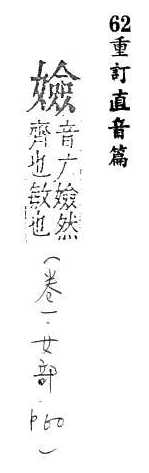 62重訂直音篇
嬐
音广嬐然
齊也敏也
（卷一．女部．p60）